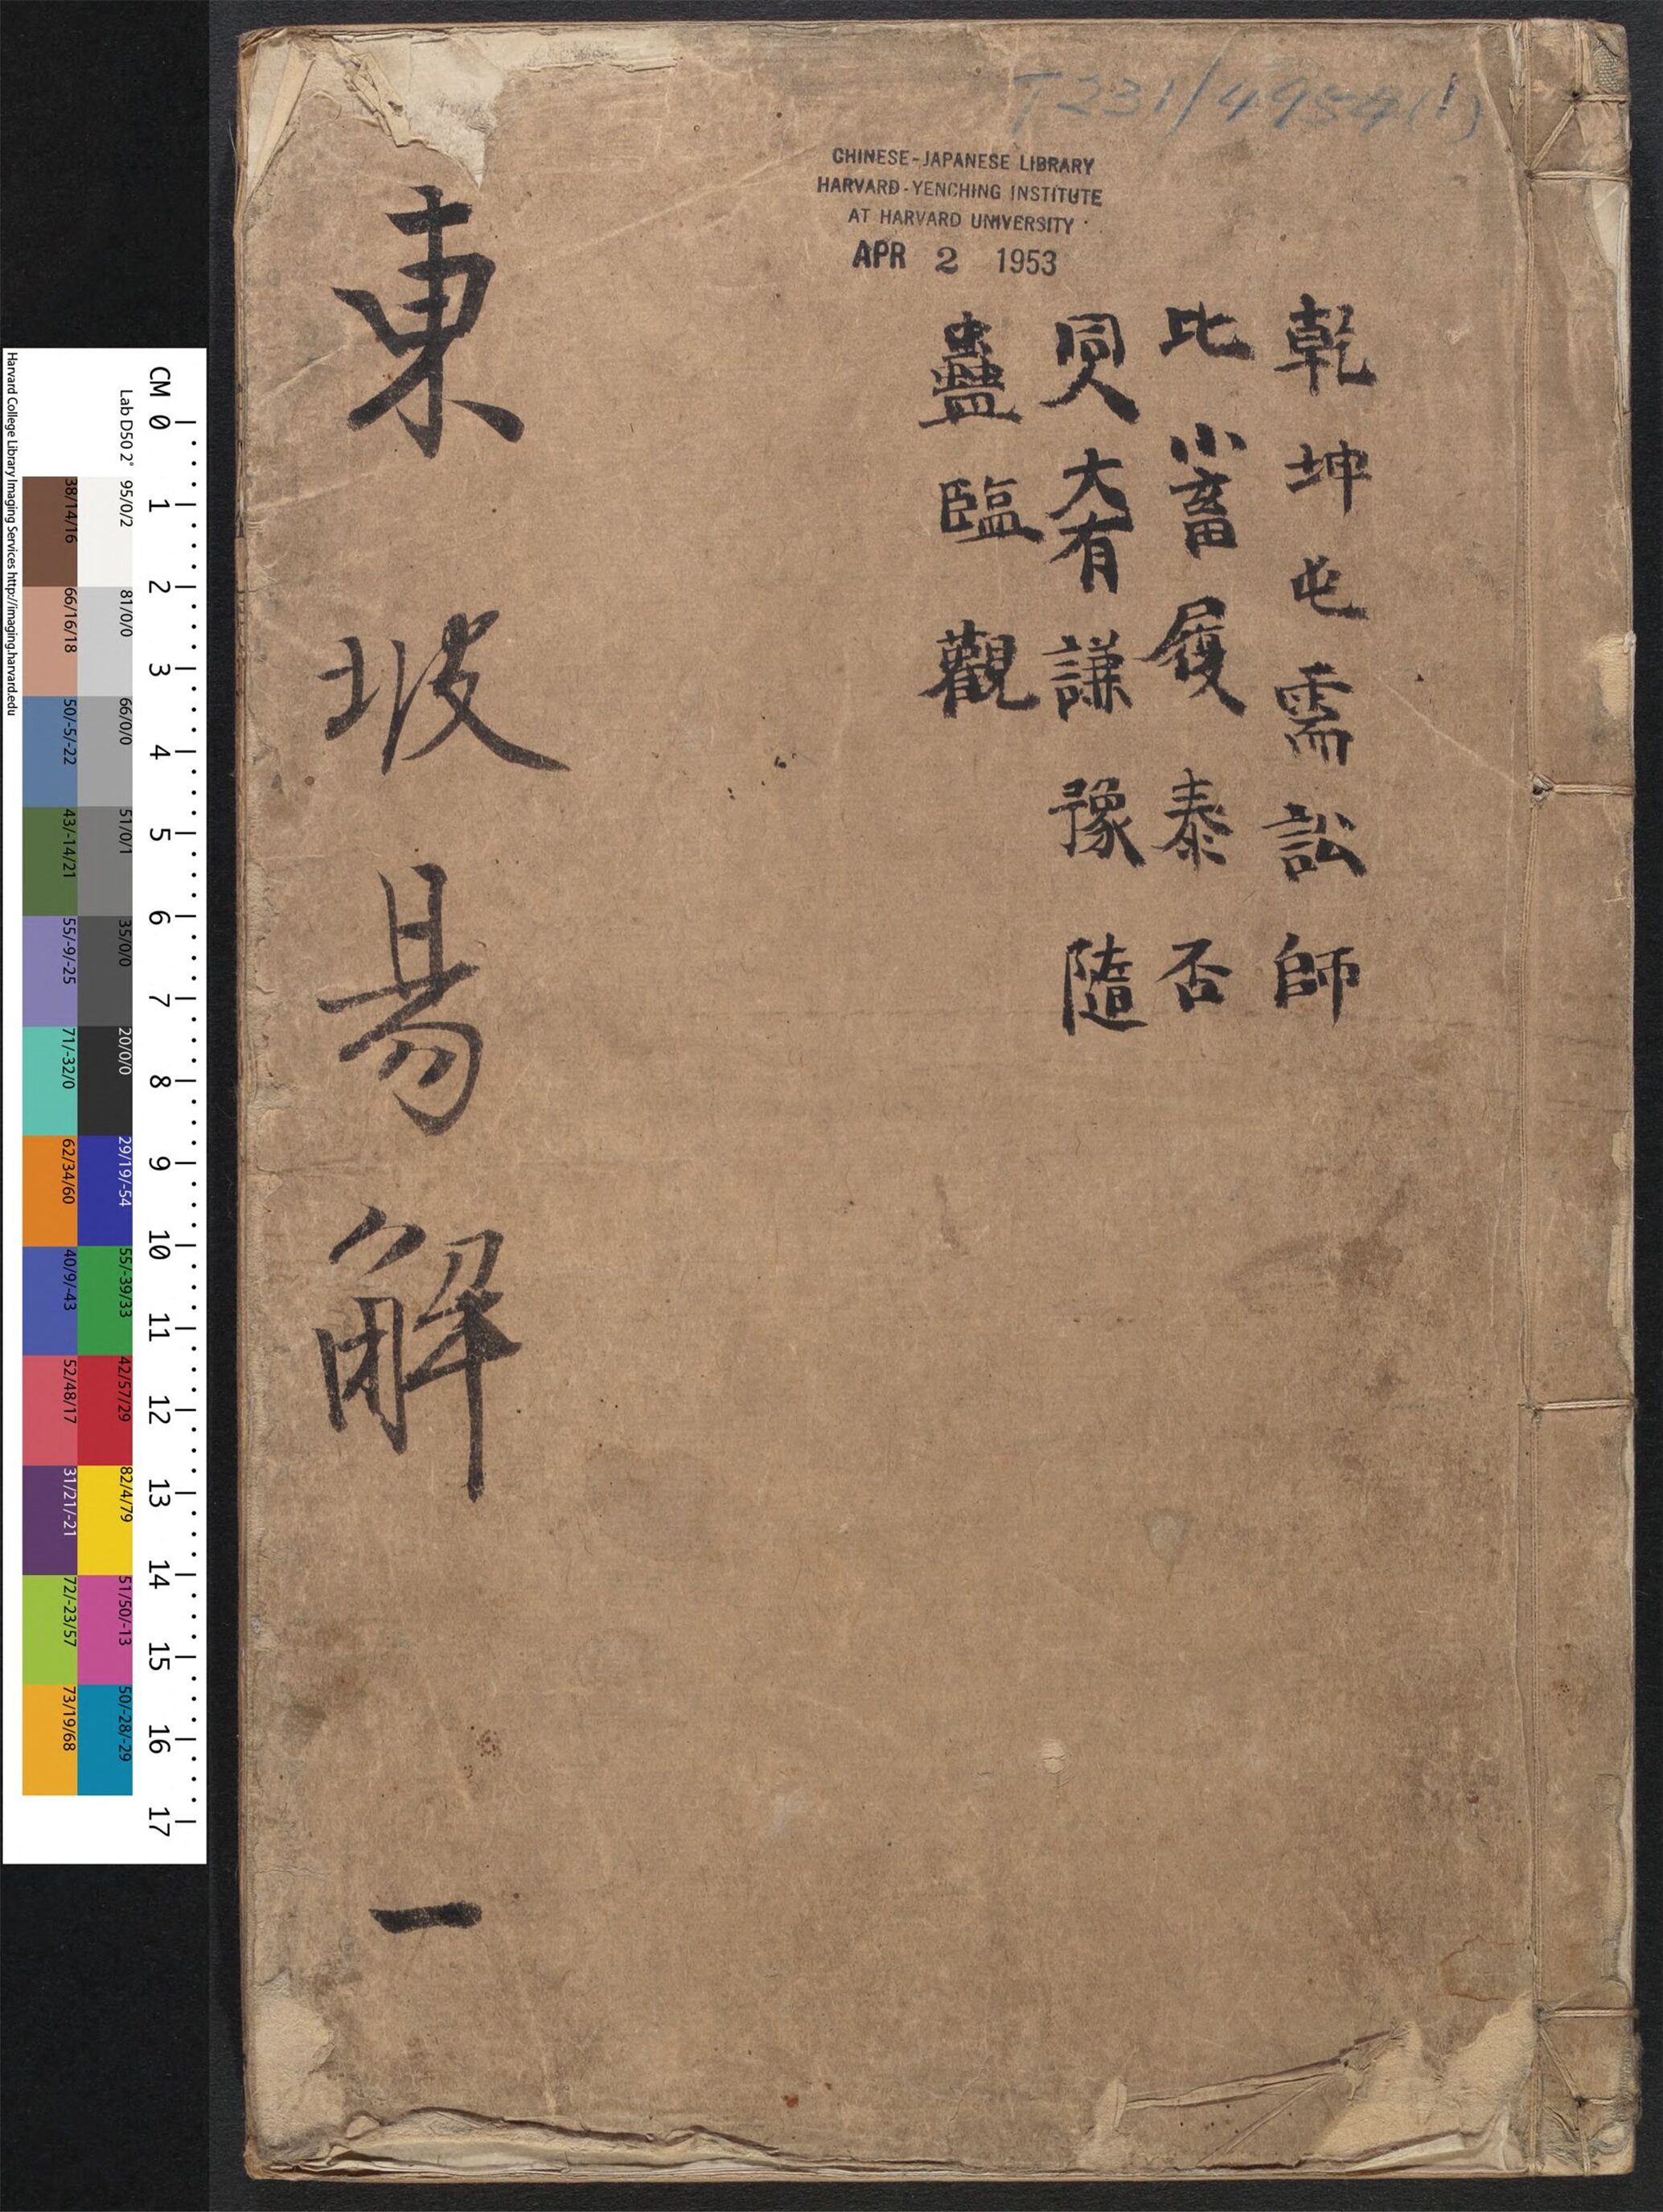 T231/4954(1)
CHINESE-JAPANESE LIBRARY
HARVARD-YENCHING INSTITUTE
AT HARVARD UNIVERSITY
APR 2 1953
乾 坤 屯 需 訟 師
比 小畜 履 泰 否
同人 大有 謙 豫 隨
蠱 臨 觀
東坡易解 一
CM 0 1 2 3 4 5 6 7 8 9 10 11 12 13 14 15 16 17
Lab D50 2° 95/0/2 81/0/0 66/0/0 51/0/1 35/0/0 20/0/0 29/19/-54 55/-39/33 42/57/29 82/4/79 51/50/-13 50/-28/-29
38/14/16 66/16/18 50/-5/-22 43/-14/21 55/-9/-25 71/-32/0 62/34/60 40/9/-43 52/48/17 31/21/-21 72/-23/57 73/19/68
Harvard College Library Imaging Services http://imaging.harvard.edu